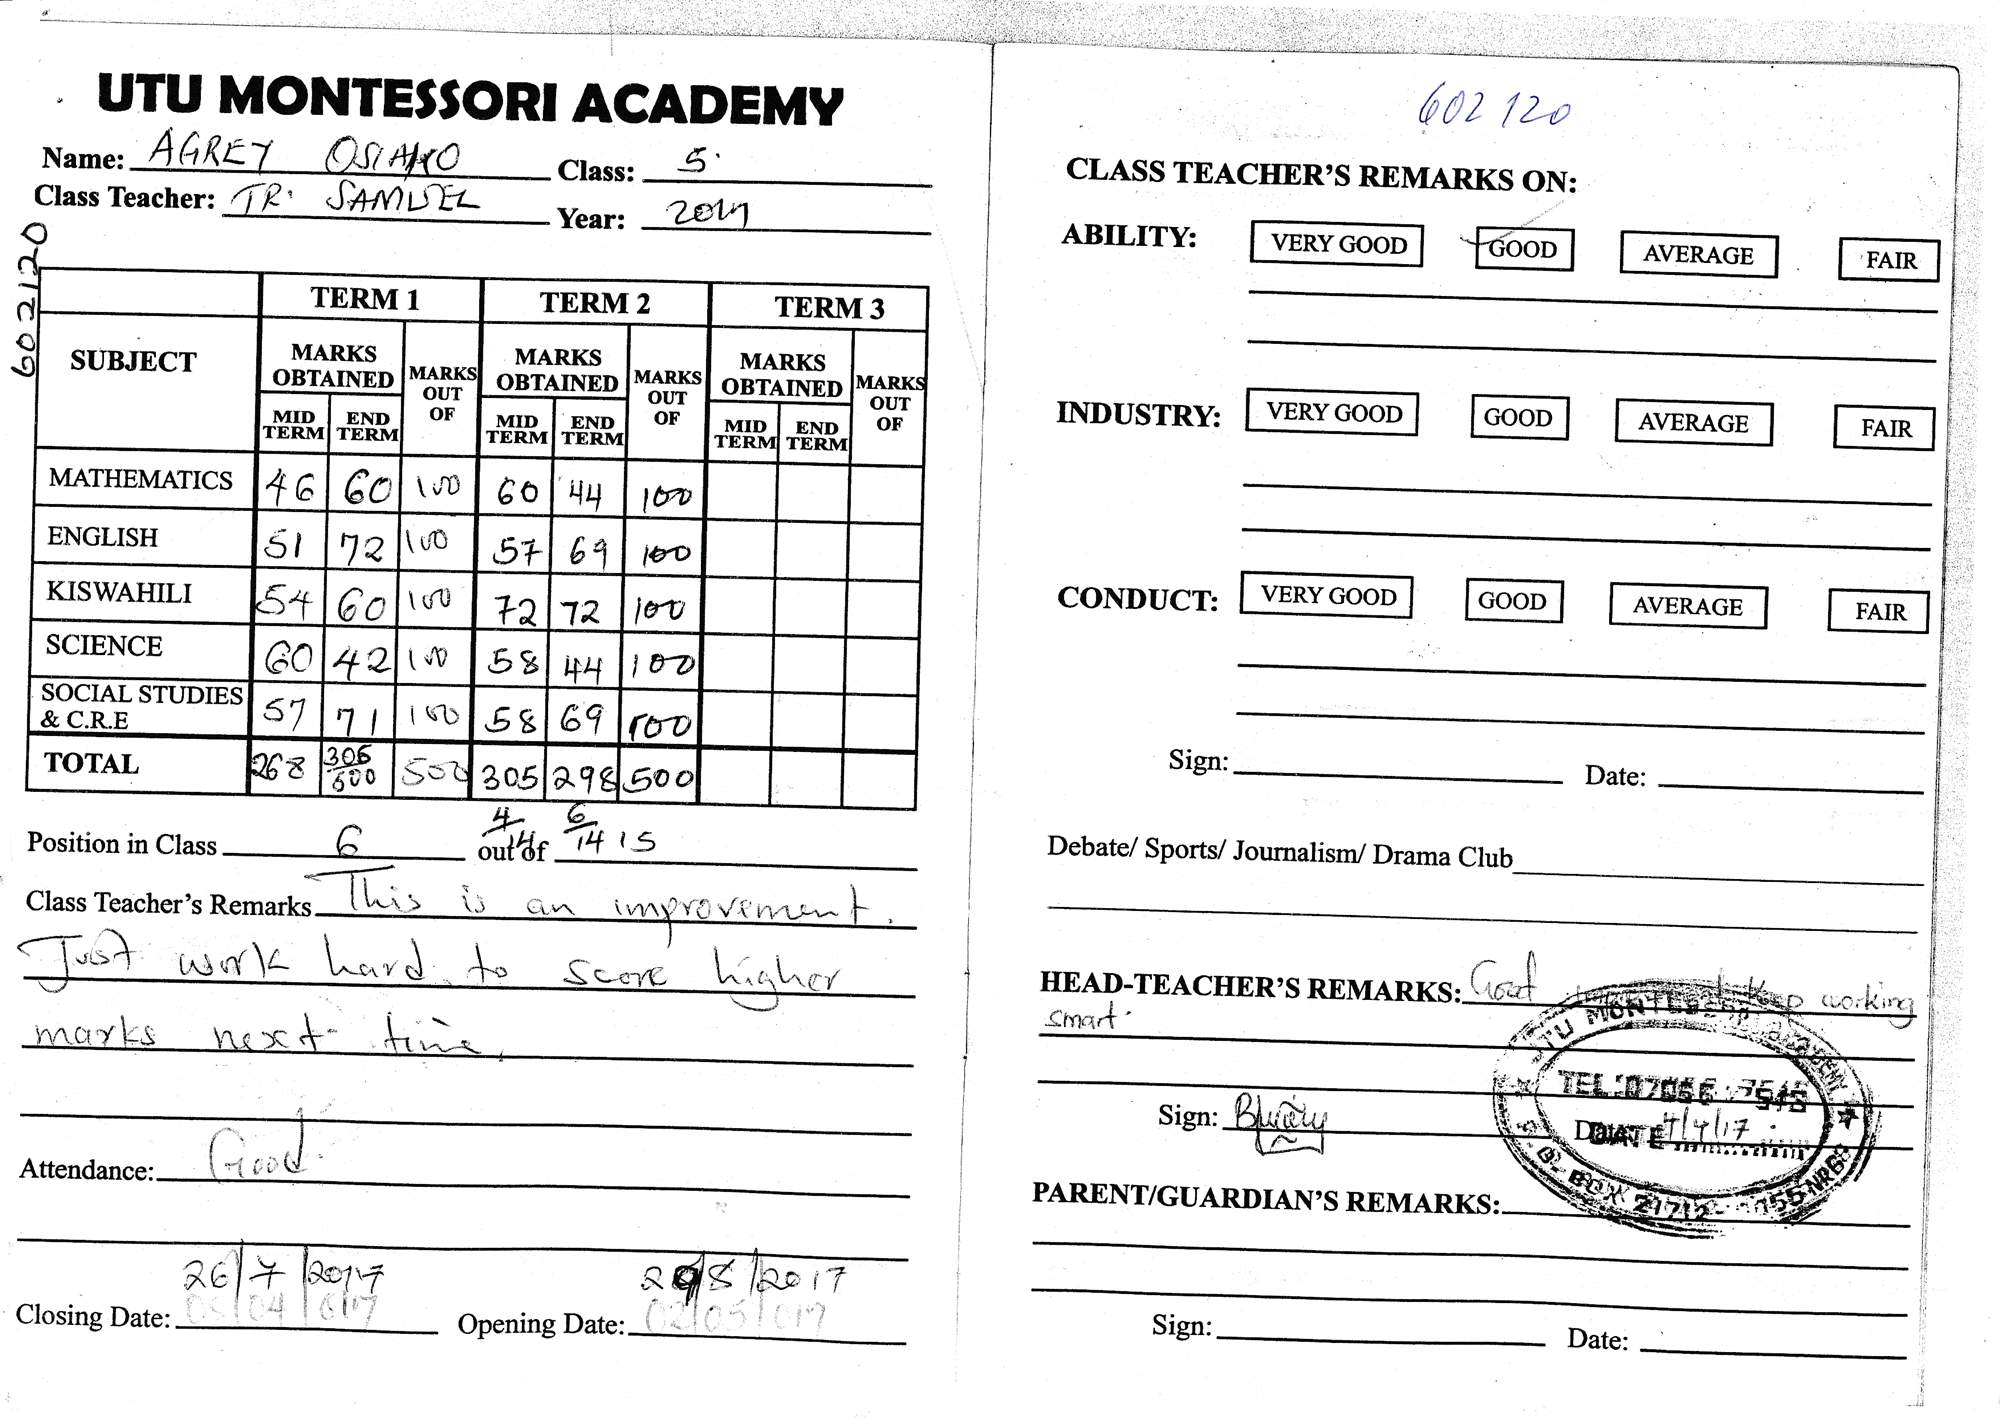 UTU MONTESSORI ACADEMY
Name: AGREY Class: 5
Class Teacher: TR. SAMUEL Year: 2017
602120
TERM 1 TERM 2 TERM 3
SUBJECT MARKS OBTAINED MARKS OUT OF MARKS OBTAINED MARKS OUT OF MARKS OBTAINED MARKS OUT OF
MID TERM END TERM MID TERM END TERM MID TERM END TERM
MATHEMATICS 46 60 100 60 44 100
ENGLISH 51 72 100 57 69 100
KISWAHILI 54 60 100 72 72 100
SCIENCE 60 42 100 58 44 100
SOCIAL STUDIES & C.R.E 57 71 100 58 69 100
TOTAL 268 305/500 500 305 298 500
4/14 6/14
Position in Class 6 out of 15
Class Teacher's Remarks This is an improvement.
Just work hard to score higher
marks next time.
Attendance: Good.
26/7/2017 2017
Closing Date: 04 Opening Date: 02/05/017
602120
CLASS TEACHER'S REMARKS ON:
ABILITY: VERY GOOD GOOD AVERAGE FAIR
INDUSTRY: VERY GOOD GOOD AVERAGE FAIR
CONDUCT: VERY GOOD GOOD AVERAGE FAIR
Sign: Date:
Debate/ Sports/ Journalism/ Drama Club
HEAD-TEACHER'S REMARKS: Good Keep working
smart.
UTU MONTESSORI ACADEMY
TEL:
Sign: Date: 4/4/17
DATE
BOX 21712
PARENT/GUARDIAN'S REMARKS:
Sign: Date: